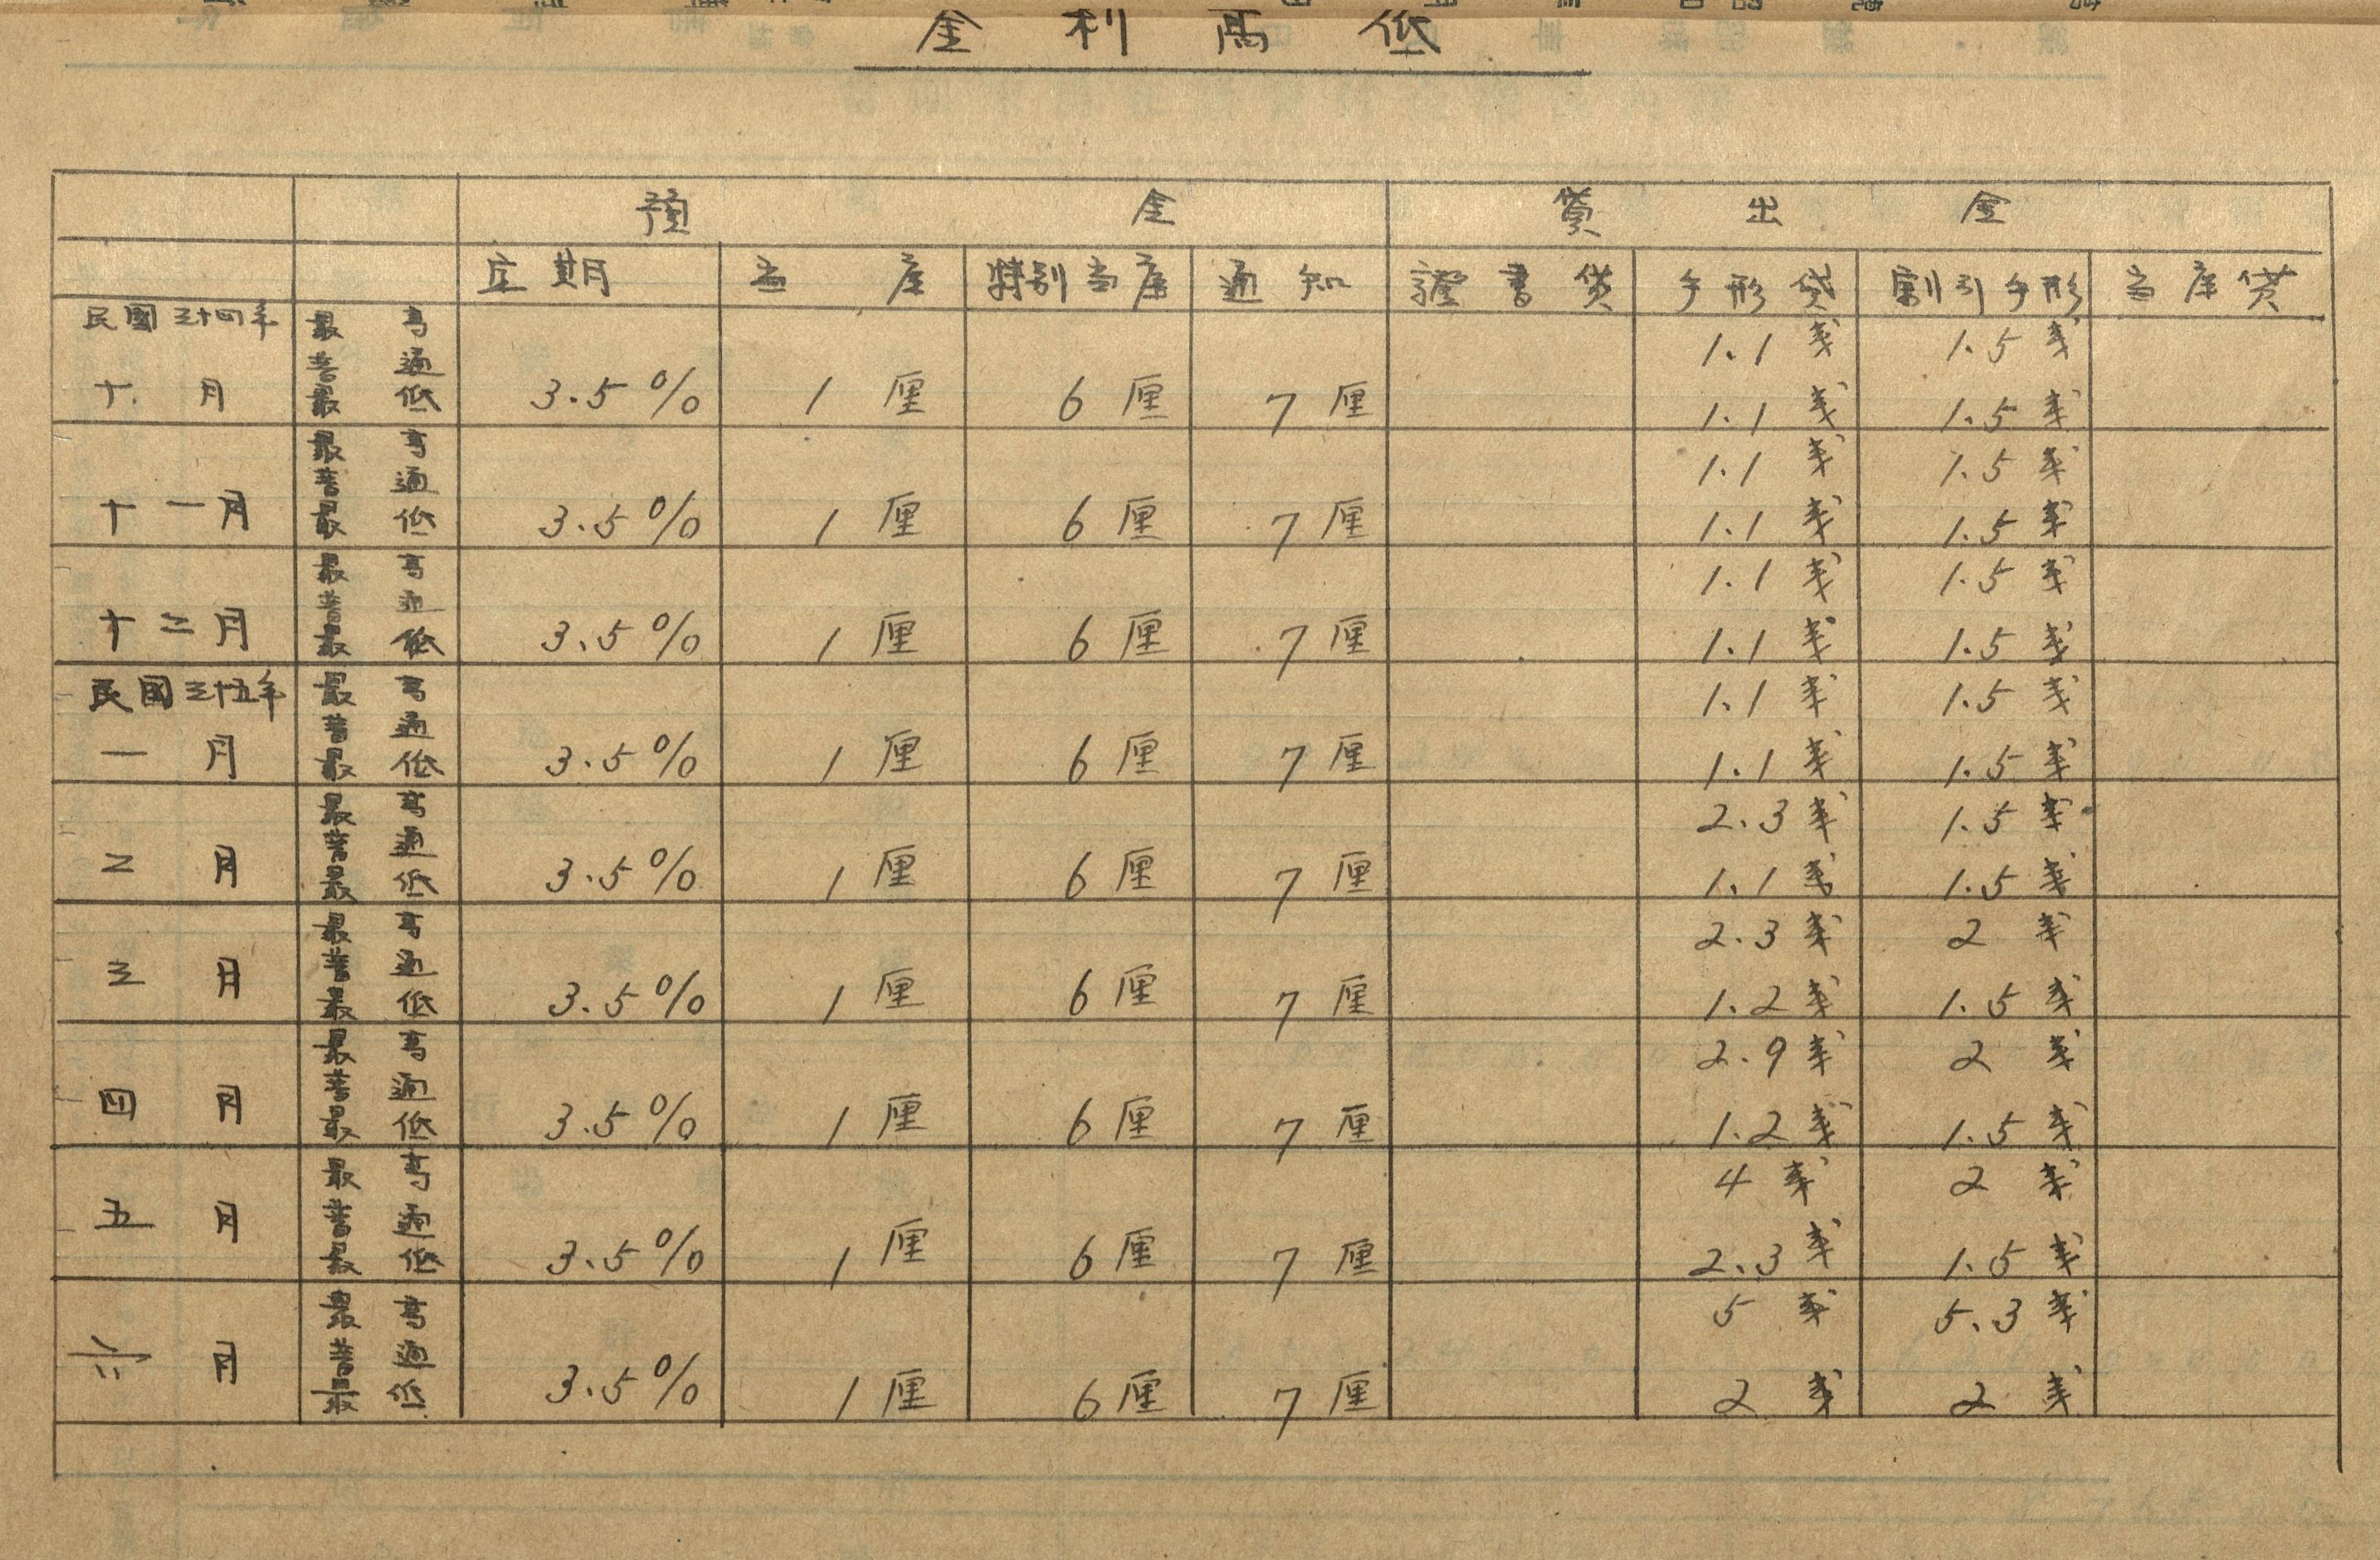 金利高低
預金 貸出金
定期 当座 特別当座 通知 證書貸 手形貸 割引手形 当座貸
民國三十四年 最高 1.1戋 1.5戋
普通
十月 最低 3.5% 1厘 6厘 7厘 1.1戋 1.5戋
最高 1.1戋 1.5戋
普通
十一月 最低 3.5% 1厘 6厘 7厘 1.1戋 1.5戋
最高 1.1戋 1.5戋
普通
十二月 最低 3.5% 1厘 6厘 7厘 1.1戋 1.5戋
民國三十五年 最高 1.1戋 1.5戋
普通
一月 最低 3.5% 1厘 6厘 7厘 1.1戋 1.5戋
最高 2.3戋 1.5戋
普通
二月 最低 3.5% 1厘 6厘 7厘 1.1戋 1.5戋
最高 2.3戋 2戋
普通
三月 最低 3.5% 1厘 6厘 7厘 1.2戋 1.5戋
最高 2.9戋 2戋
普通
四月 最低 3.5% 1厘 6厘 7厘 1.2戋 1.5戋
最高 4戋 2戋
普通
五月 最低 3.5% 1厘 6厘 7厘 2.3戋 1.5戋
最高 5戋 5.3戋
普通
六月 最低 3.5% 1厘 6厘 7厘 2戋 2戋